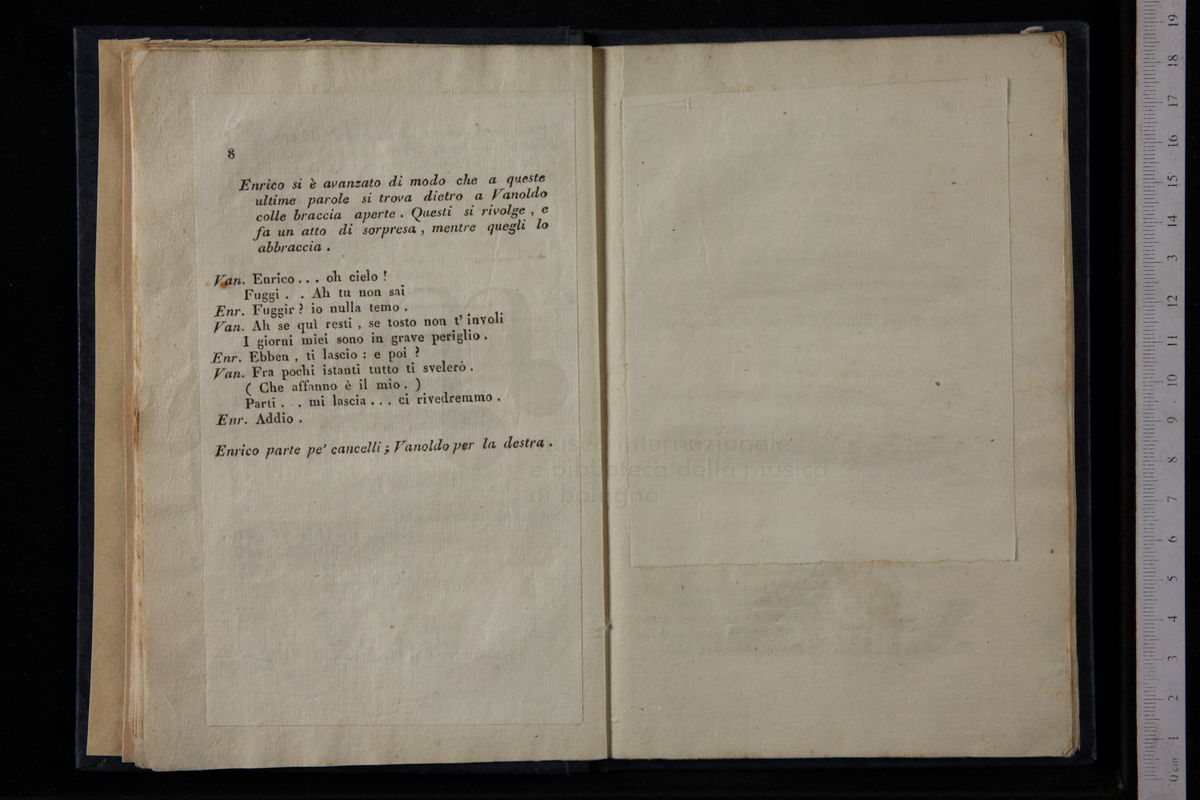 8
Enrico si è avanzato di modo che a queste
ultime parole si trova dietro a Vanoldo
colle braccia aperte . Questi si rivolge , e
fa un atto di sorpresa , mentre quegli lo
abbraccia .
Van. Enrico . . . oh cielo !
Fuggi . . Ah tu non sai
Enr. Fuggir ? io nulla temo .
Van. Ah se quì resti , se tosto non t' involi
I giorni miei sono in grave periglio .
Enr. Ebben , ti lascio : e poi ?
Van. Fra pochi istanti tutto ti svelerò .
( Che affanno è il mio . )
Parti . . mi lascia . . . ci rivedremmo .
Enr. Addio .
Enrico parte pe' cancelli ; Vanoldo per la destra .
museo internazionale
e biblioteca della musica
di bologna
0 cm 1 2 3 4 5 6 7 8 9 10 11 12 13 14 15 16 17 18 19